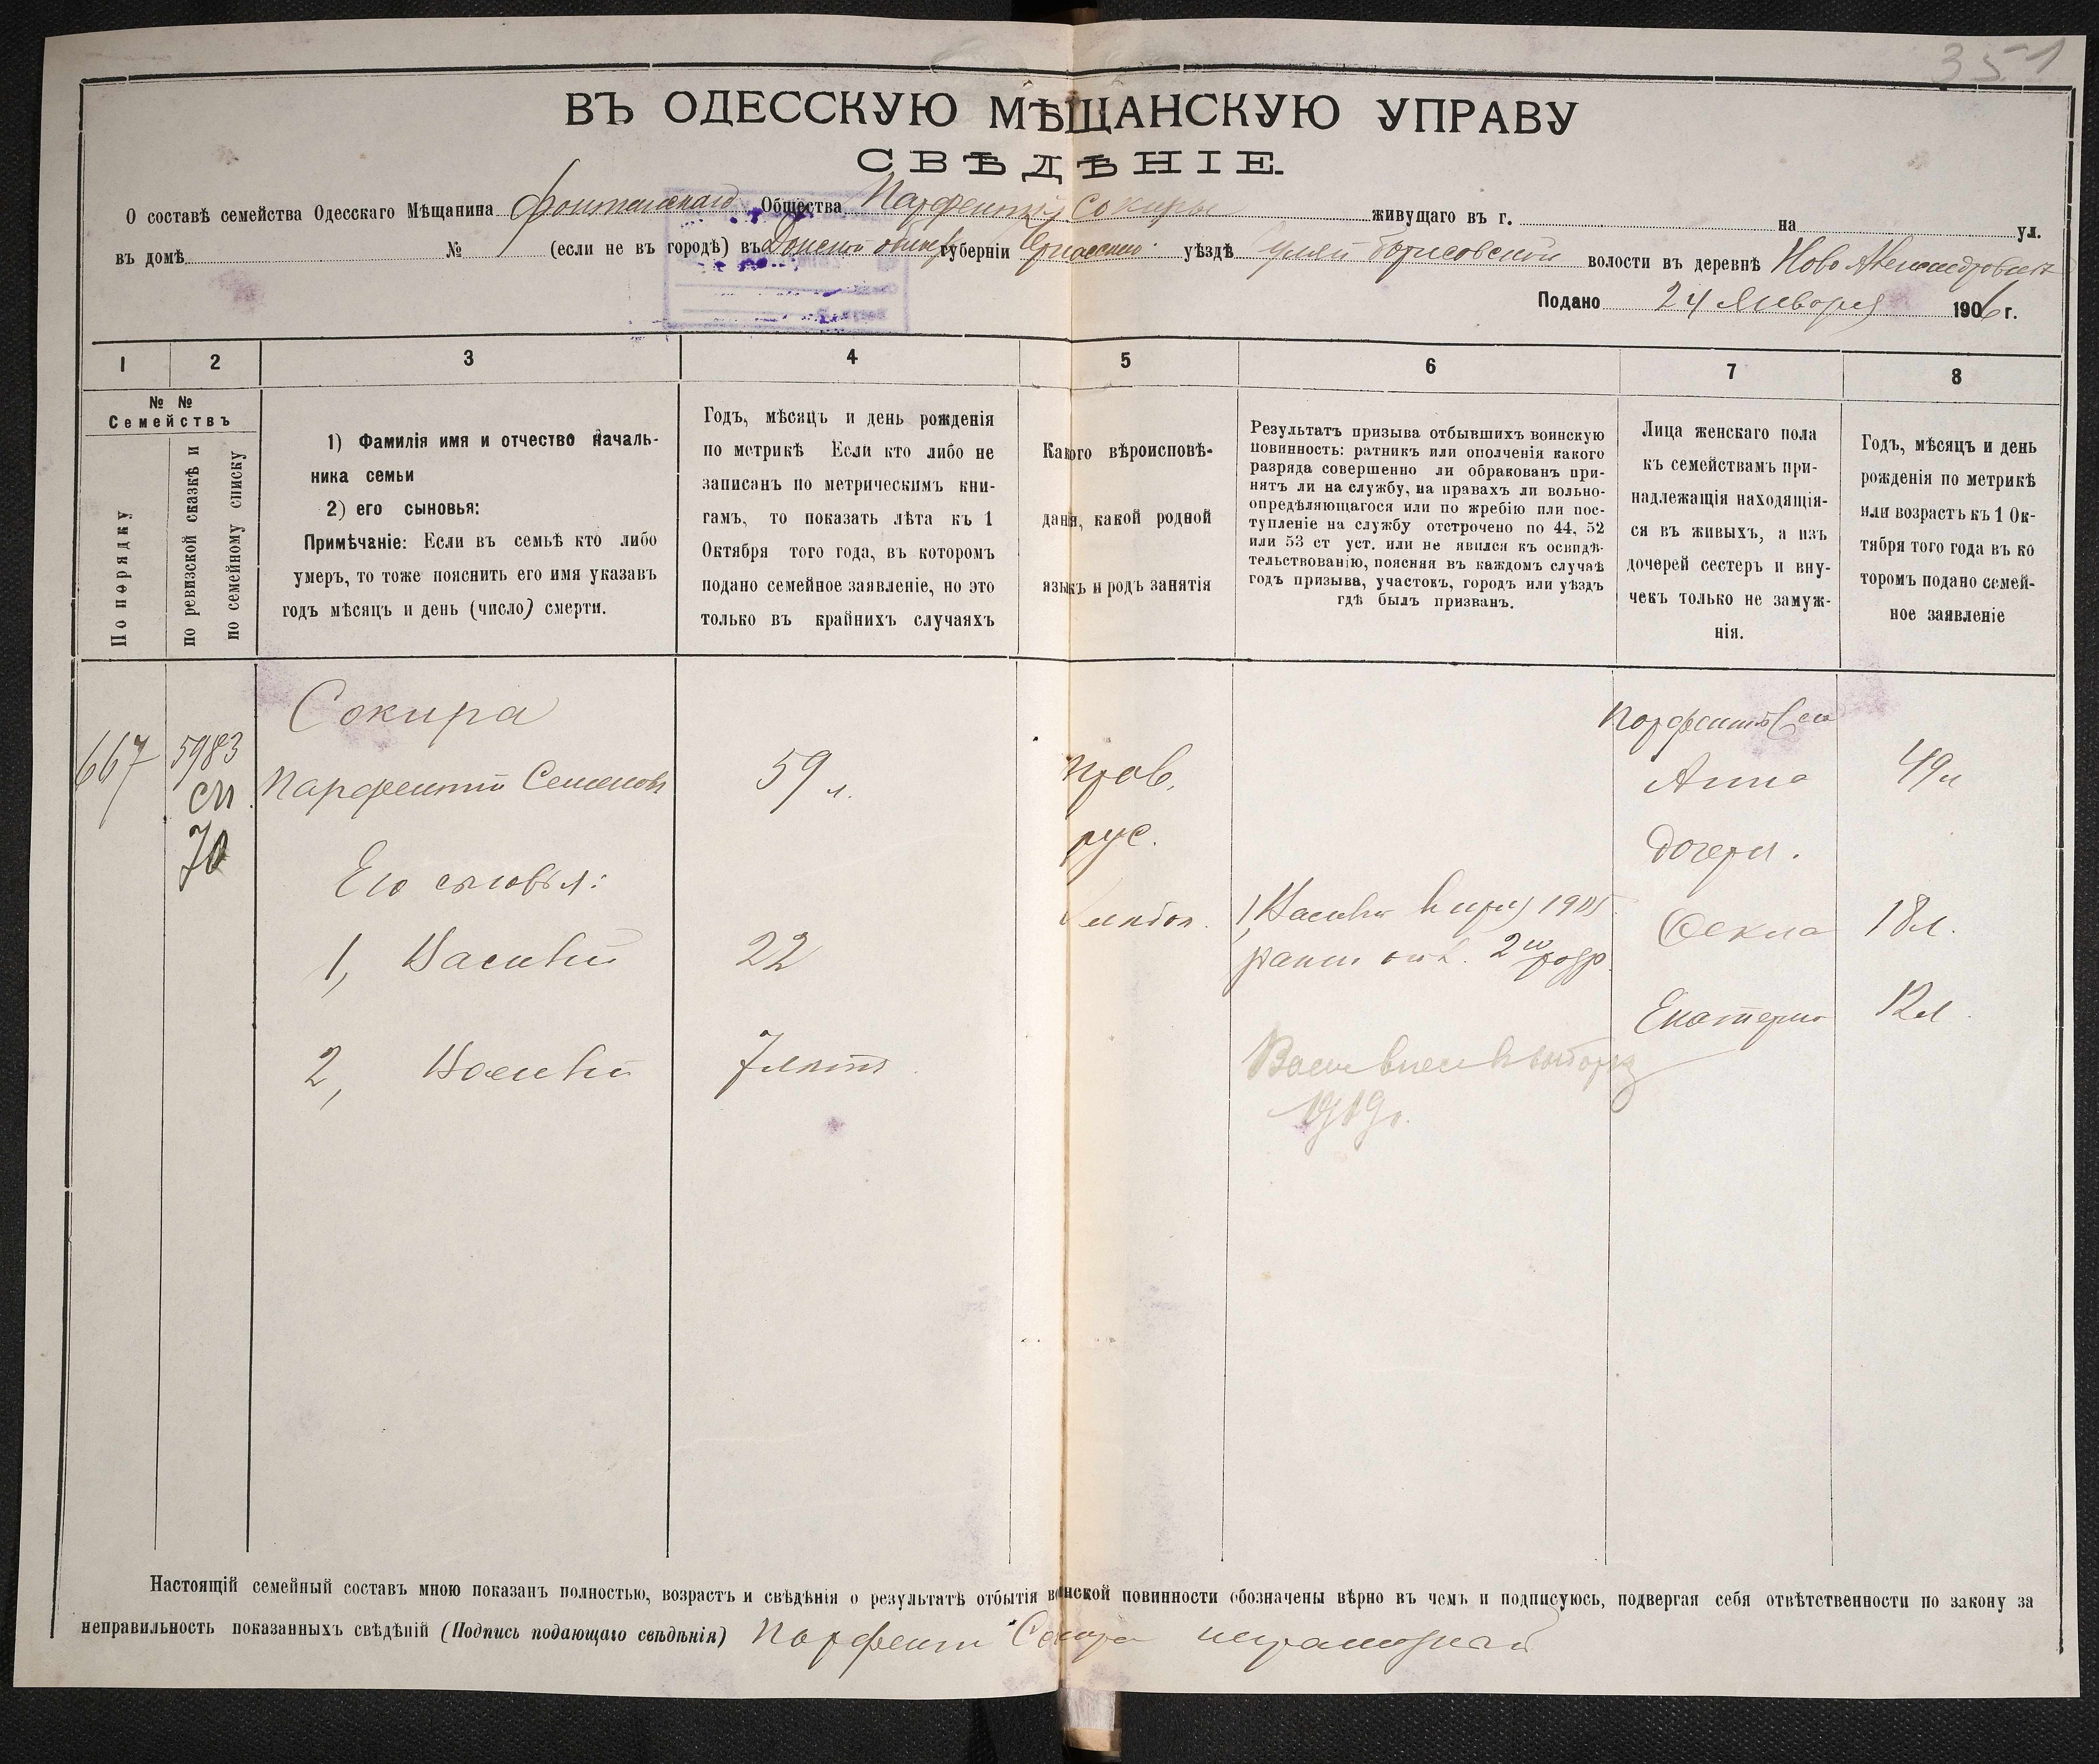 351
ВЪ ОДЕССКУЮ МѢЩАНСКУЮ УПРАВУ
СВѢДѢНІЕ.
О составѣ семейства Одесскаго Мѣщанина Фонтанскаго Общества Парфентія Сокиры живущаго въ г. на ул.
въ домѣ № (если не въ городѣ) въ Донской губерніи уѣздѣ борисовской волости въ деревнѣ Ново Александровке
Подано 24 Января 1906 г.
1 2 3 4 5 6 7 8
№ №
Семействъ
По порядку
по ревизской сказкѣ и
по семейному списку
1) Фамилія имя и отчество началь-
ника семьи
2) его сыновья:
Примѣчаніе: Если въ семьѣ кто либо
умеръ, то тоже пояснить его имя указавъ
годъ мѣсяцъ и день (число) смерти.
Годъ, мѣсяцъ и день рожденія
по метрикѣ Если кто либо не
записанъ по метрическимъ кни-
гамъ, то показать лѣта къ 1
Октября того года, въ которомъ
подано семейное заявленіе, но это
только въ крайнихъ случаяхъ
Какого вѣроисповѣ-
данія, какой родной
языкъ и родъ занятія
Результатъ призыва отбывшихъ воинскую
повинность: ратникъ или ополченія какого
разряда совершенно ли обракованъ при-
нятъ ли на службу, на правахъ ли вольно-
опредѣляющагося или по жребію или пос-
тупленіе на службу отстрочено по 44, 52
или 53 ст уст. или не явился къ освидѣ-
тельствованію, поясняя въ каждомъ случаѣ
годъ призыва, участокъ, городъ или уѣздъ
гдѣ былъ призванъ.
Лица женскаго пола
къ семействамъ при-
надлежащія находящія-
ся въ живыхъ, а изъ
дочерей сестеръ и вну-
чекъ только не замуж-
нія.
Годъ, мѣсяцъ и день
рожденія по метрикѣ
или возрастъ къ 1 Ок-
тября того года въ ко
торомъ подано семей-
ное заявленіе
Сокира
667 5983 Парфентій Семеновъ 59 л. прав. Анна 49 л
сп
70
рус.
Его сыновья: дочери.
1, Василій 22 1, Василій 1905 Ѳекла 18 л.
2го разр.
Екатерина 12 л.
2, Василій 7 лѣтъ
1919г.
Настоящій семейный составъ мною показанъ полностью, возрастъ и свѣдѣнія о результатѣ отбытія воинской повинности обозначены вѣрно въ чемъ и подписуюсь, подвергая себя отвѣтственности по закону за
неправильность показанныхъ свѣдѣній (Подпись подающаго свѣдѣнія) Парфентій Сокира неграмотный